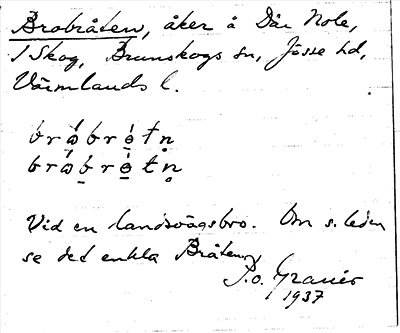 Brobråten, åker å Där Nole,
i Skog, Brunskogs sn, Jösse hd,
Värmlands l.
Vid en landsvägsbro. Om s. leden
se det enkla Bråten.
P.o. Granér
1937